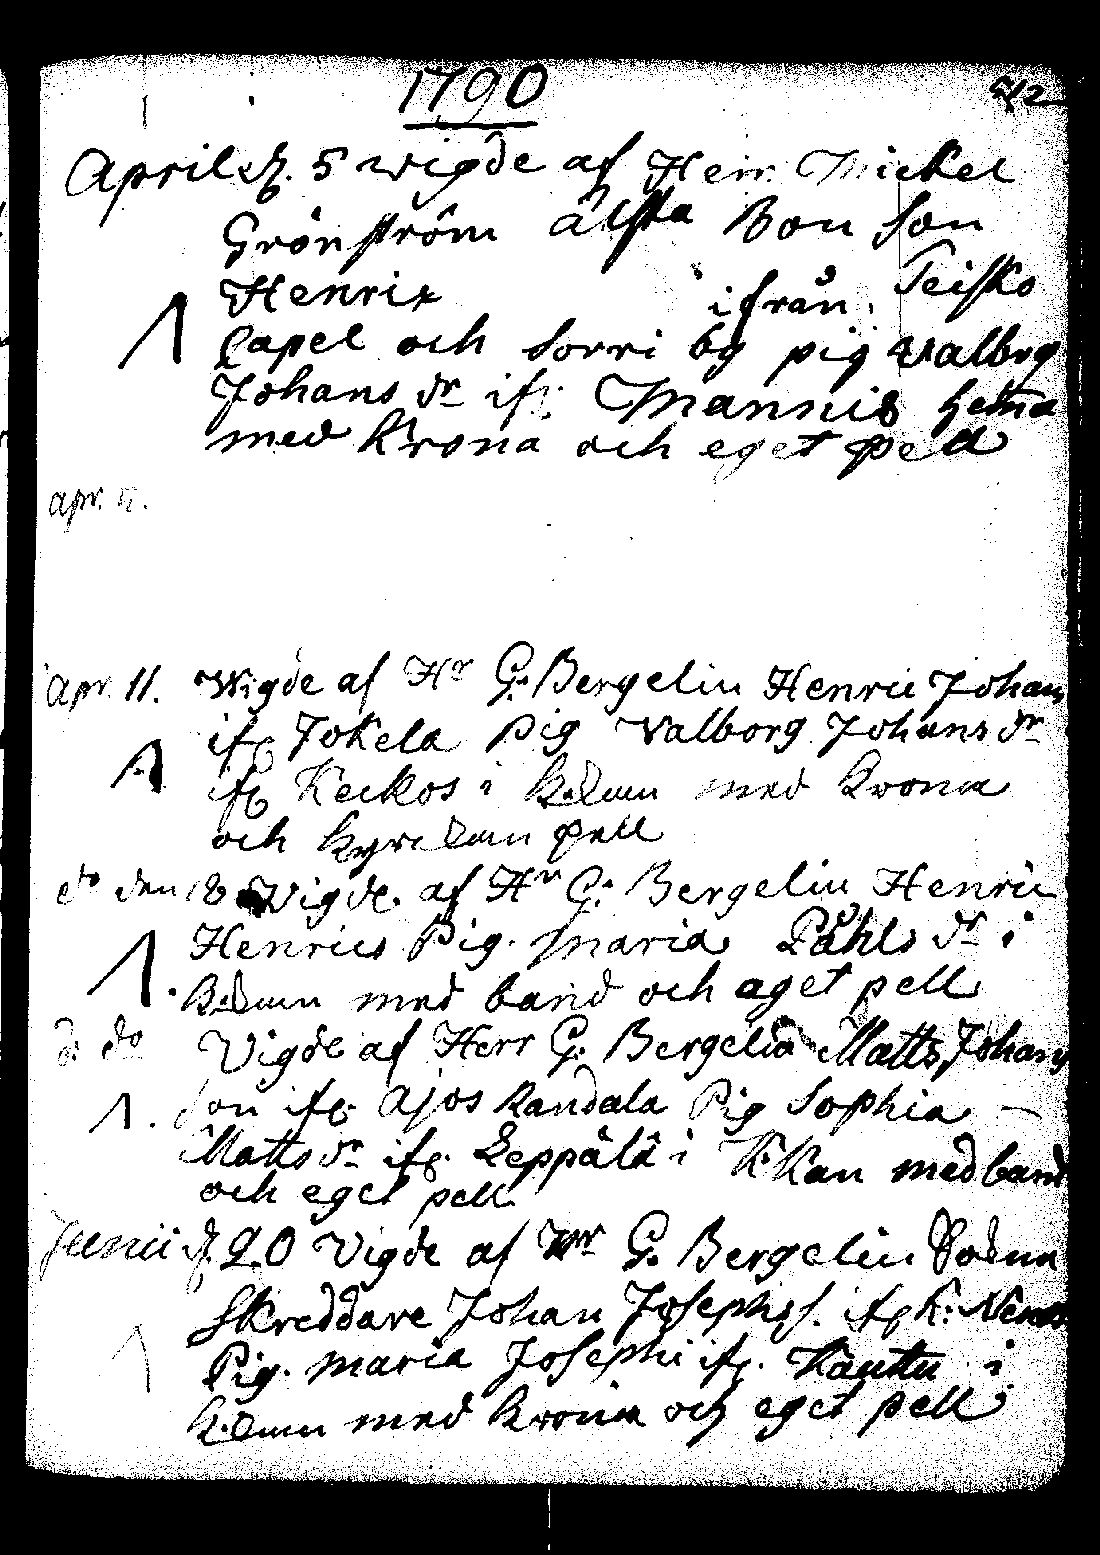 1790
April d. 5 wigde af Herr Mickel
Grönström älsta Bon son
Henrix ifrån Teisko
Capel och Sorri by pig Valbrg
Johans dr ifr. Mannis hema
med Krona och eget pell
apr.
apr. 11. Wigde af Hr G. Bergelin Henric Johans
ifr Jokela Pig Valborg Johans dr
ifr Keckos i med krona
och pell
do den 18 Vigde af Hr G. Bergelin Henric
Henrics Pig. Maria Påhls dr i
med band och eget pell
d. do Vigde af Herr G. Bergelin Matts Johans
son ifr. Ajos Kandala Pig Sophia
Matts dr ifr. Leppälä i K:Kan med band
och eget pell
Junii d. 20 Vigde af Hr G. Bergelin
Skreddare Johan Josephss. ifr K:
Pig. Maria Josephi ifr. i
med krona och eget pell